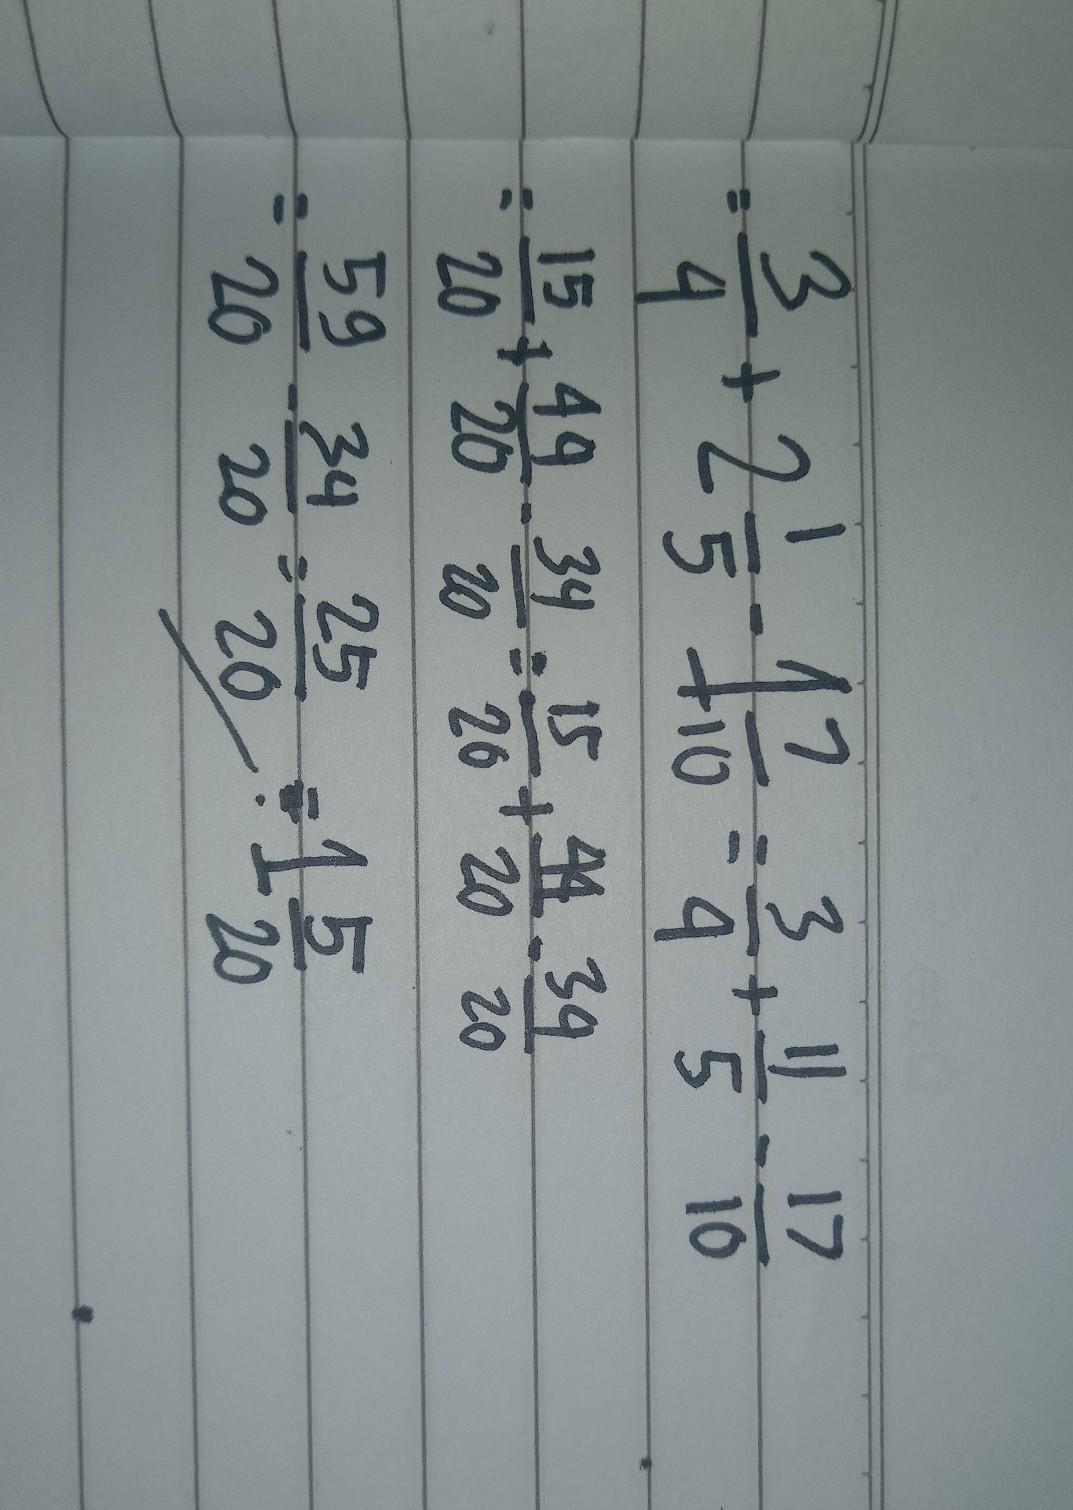 = 3/4 + 2 1/5 - 1 7/10 = 3/4 + 11/5 - 17/10
= 15/20 + 44/20 - 34/20 = 15/20 + 44/20 - 34/20
= 59/20 - 34/20 = 25/20 = 1 5/20